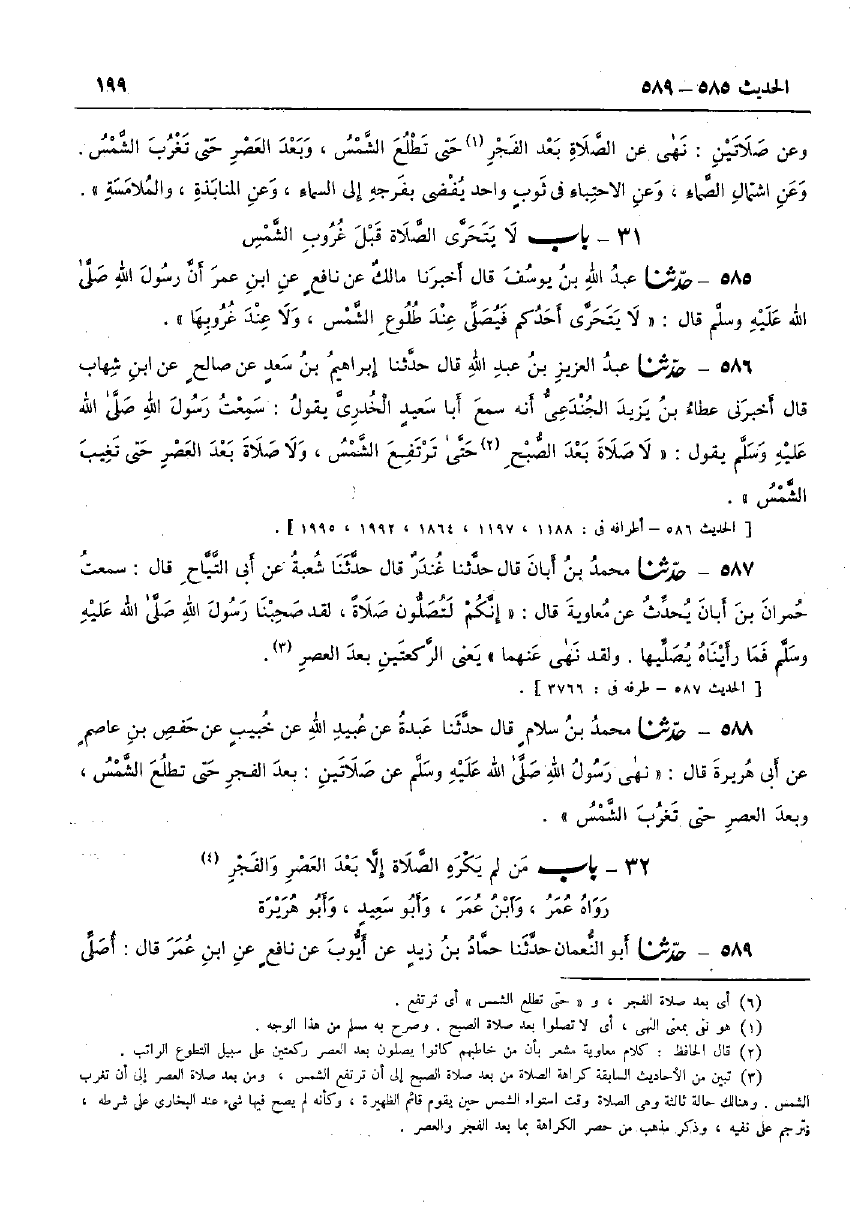 الحديث ٥٨٥ – ٥٨٩ ١٩٩
وعن صَلَاتَيْنِ : نَهٰى عن الصَّلاةِ بَعْدَ الفَجْرِ (١) حَتى تَطْلُعَ الشَّمْسُ ، وَبَعْدَ العَصْرِ حَتى تَغْرُبَ الشَّمْسُ .
وَعَنِ اشتِمالِ الصَّماءِ ، وَعَنِ الاحتِباءِ فى ثَوبٍ واحد يُفْضى بفَرجهِ إلى السماء ، وَعَنِ المنابَذةِ ، والمُلامَسَةِ » .
٣١ – باب لَا يَتَحَرَّى الصَّلَاة قَبْلَ غُرُوبِ الشَّمْسِ
٥٨٥ – حدّثنا عبدُ اللهِ بنُ يوسُفَ قال أخبرَنا مالكٌ عن نافعٍ عنِ ابنِ عمرَ أَنَّ رسُولَ اللهِ صَلَّىٰ
الله عَلَيْهِ وسلَّم قال : « لَا يَتَحَرَّى أَحَدُكم فَيُصَلِّى عِنْدَ طُلُوعِ الشَّمْسِ ، وَلَا عِنْدَ غُرُوبِهَا » .
٥٨٦ – حدّثنا عبدُ العزيزِ بنُ عبدِ اللهِ قال حدَّثنا إبراهيمُ بنُ سَعدٍ عن صالحٍ عن ابنِ شِهاب
قال أَخبرَنى عطاءُ بنُ يَزيدَ الجُنْدَعِىُّ أَنه سمعَ أَبا سَعيدٍ الْخُدرِىَّ يقولُ : سَمِعْتُ رَسُولَ اللهِ صَلَّىٰ الله
عَليْهِ وَسَلَّم يقول : « لَا صَلَاةَ بَعْدَ الصُّبْحِ (٢) حَتَّىٰ تَرْتَفِعَ الشَّمْسُ ، وَلَا صَلَاةَ بَعْدَ العَصْرِ حَتى تَغِيبَ
الشَّمْسُ » .
[ الحديث ٥٨٦ – أطرافه فى : ١١٨٨ ، ١١٩٧ ، ١٨٦٤ ، ١٩٩٢ ، ١٩٩٥ ] .
٥٨٧ – حدّثنا محمدُ بنُ أَبانَ قال حدَّثنا غُندَرٌ قال حدَّثَنَا شُعبةُ عن أَبى التَّيَّاحِ قال : سمعتُ
حُمرانَ بنَ أَبانَ يُحدِّثُ عن مُعاويةَ قال : « إِنَّكُمْ لَتُصَلُّون صَلَاةً ، لقد صَحِبْنَا رَسُولَ اللهِ صَلَّىٰ الله عَليْهِ
وسَلَّم فَمَا رأَيْنَاهُ يُصَلِّيها . ولقد نَهٰى عَنهما » يَعنى الرَّكعتَينِ بعدَ العصرِ (٣) .
[ الحديث ٥٨٧ – طرفه فى : ٣٧٦٦ ] .
٥٨٨ – حدّثنا محمدُ بنُ سلامٍ قال حدَّثَنا عَبدةُ عن عُبيدِ اللهِ عن خُبيبٍ عن حَفصِ بنِ عاصمٍ
عن أَبى هُريرةَ قال : « نهٰى رَسُولُ اللهِ صَلَّىٰ الله عَلَيْهِ وسَلَّم عن صَلَاتَينِ : بعدَ الفجرِ حَتى تطلُعَ الشَّمْسُ ،
وبعدَ العصرِ حتى تَغرُبَ الشَّمْسُ » .
٣٢ – باب مَن لم يَكْرَهِ الصَّلَاة إِلَّا بَعْدَ العَصْرِ وَالفَجْرِ (٤)
رَوَاهُ عُمَرُ ، وَابْنُ عُمَرَ ، وَأَبو سَعِيدٍ ، وَأَبُو هُرَيْرَة
٥٨٩ – حدّثنا أبو النُّعمان حدَّثنا حمَّادُ بنُ زيدٍ عن أَيُّوبَ عن نافعٍ عنِ ابنِ عُمَرَ قال : أُصَلِّى
(٦) أى بعد صلاة الفجر ، و « حتى تطلع الشمس » أى ترتفع .
(١) هو نفى بمعنى النهى ، أى لا تصلوا بعد صلاة الصبح . وصرح به مسلم من هذا الوجه .
(٢) قال الحافظ : كلام معاوية مشعر بأن من خاطبهم كانوا يصلون بعد العصر ركعتين على سبيل التطوع الراتب .
(٣) تبين من الأحاديث السابقة كراهة الصلاة من بعد صلاة الصبح إلى أن ترتفع الشمس ، ومن بعد صلاة العصر إلى أن تغرب
الشمس . وهنالك حالة ثالثة وهى الصلاة وقت استواء الشمس حين يقوم قائم الظهيرة ، وكأنه لم يصح فيها شىء عند البخارى على شرطه ،
فترجم على نفيه ، وذكر مذهب من حصر الكراهة بما بعد الفجر والعصر .